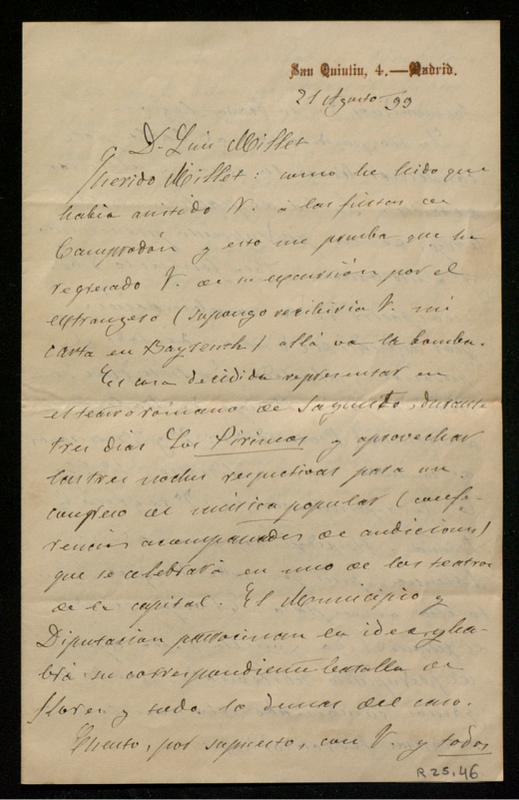 San Quintin, 4.—Madrid.
21 Agosto 99
D. Luis Millet
Querido Millet: como he leido que
habia asistido V. á las fiestas de
Camprodón y esto me prueba que ha
regresado V. de su excursión por el
estrangero (supongo recibiria V. mi
carta en Bayreuth) allá va la bomba.
Es cosa decidida representar en
el teatro romano de Sagunto, durante
tres dias Los Pirineos y aprovechar
las tres noches respectivas para un
congreso de música popular (confe-
rencias acompañadas de audiciones)
que se celebrará en uno de los teatros
de la capital. El Municipio y
Diputación patrocinan la idea, y ha-
brá su correspondiente batalla de
flores y todo lo demas del caso.
Cuento, por supuesto, con V. y todos
R 25.46